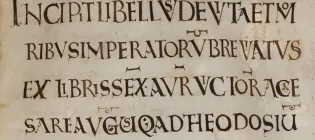 INCIPIT LIBELLV DE VTA ET M
RIBVS IMPERATORV BREVIATVS
EX LIBRIS SEX AVR VCTOR A CE
SARE AVG VSQ AD THEODOSIV